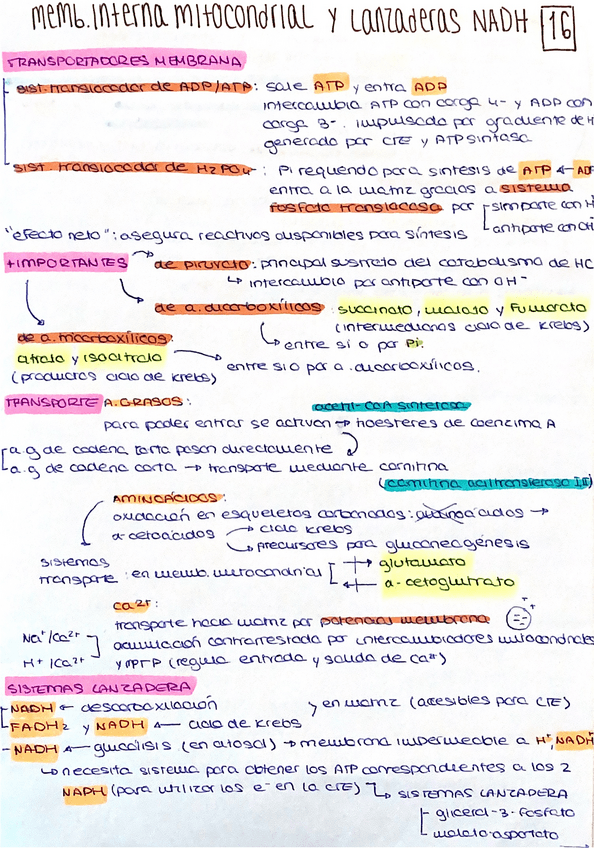 memb. interna mitocondrial y Lanzaderas NADH 16
TRANSPORTADORES MEMBRANA
sist. translocador de ADP/ATP: sale ATP y entra ADP
intercambia ATP con carga 4- y ADP con
carga 3-. impulsada por gradiente de H
generado por CTE y ATPsintasa
sist. translocador de H2PO4-: Pi requerido para síntesis de ATP ← AD
entra a la matriz gracias a sistema
fosfato translocasa por simporte con H
antiporte con OH
"efecto neto": asegura reactivos disponibles para síntesis
+IMPORTANTES → de piruvato: principal sustrato del catabolismo de HC
↳ intercambio por antiporte con OH-
de a. dicarboxílicos: succinato, malato y Fumarato
(intermediarios ciclo de krebs)
↳ entre sí o por Pi.
de a. tricarboxílicos:
citrato y isocitrato → entre sí o por a. dicarboxílicos.
(productos ciclo de krebs)
TRANSPORTE A.GRASOS: acetil-CoA sintetasa
para poder entrar se activan → tioésteres de coenzima A
a.g de cadena corta pasan directamente
a.g de cadena corta → transporte mediante carnitina
(carnitina aciltransferasa I, II)
AMINOÁCIDOS:
oxidación en esqueletos carbonados: aminoácidos →
α-cetoácidos → ciclo krebs
→ precursores para gluconeogénesis
sistemas
transporte: en memb. mitocondrial → glutamato
← α-cetoglutrato
Ca2+:
transporte hacia matriz por potencial membrana
Na+/Ca2+ acumulación contrarrestada por intercambiadores mitocondriales
H+/Ca2+ y mPTP (regula entrada y salida de Ca2+)
SISTEMAS LANZADERA
NADH ← descarboxilación
FADH2 y NADH ← ciclo de krebs y en matriz (accesibles para CTE)
- NADH ← glucólisis (en citosol) → membrana impermeable a H+, NADH
↳ necesita sistema para obtener los ATP correspondientes a los 2
NADH (para utilizar los e- en la CTE) ↳ SISTEMAS LANZADERA
- glicerol-3-fosfato
- malato-aspartato